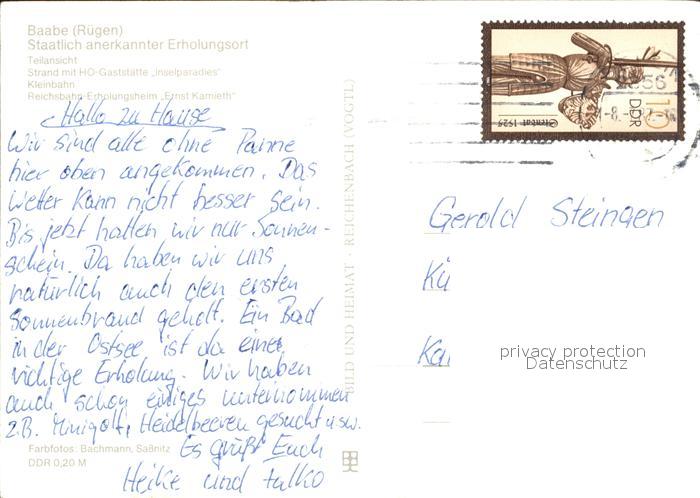 Baabe (Rügen)
Staatlich anerkannter Erholungsort
Teilansicht
Strand mit HO-Gaststätte „Inselparadies"
Kleinbahn
Reichsbahn-Erholungsheim „Ernst Kamieth"
Hallo zu Hause
Wir sind alle ohne Panne
hier oben angekommen. Das
Wetter kann nicht besser sein.
Bis jetzt hatten wir nur Sonnen-
schein. Da haben wir uns
natürlich auch den ersten
Sonnenbrand geholt. Ein Bad
in der Ostsee ist da eine
richtige Erholung. Wir haben
auch schon einiges unternommen
z.B. Minigolf, Heidelbeeren gesucht usw.
Es grüßt Euch
Heike und Falko
Farbfotos: Bachmann, Saßnitz
DDR 0,20 M
BILD UND HEIMAT · REICHENBACH (VOGTL)
10
DDR
Stralsund 1525
56
-8.-
Gerold Steingen
Kü
Kai
privacy protection
Datenschutz